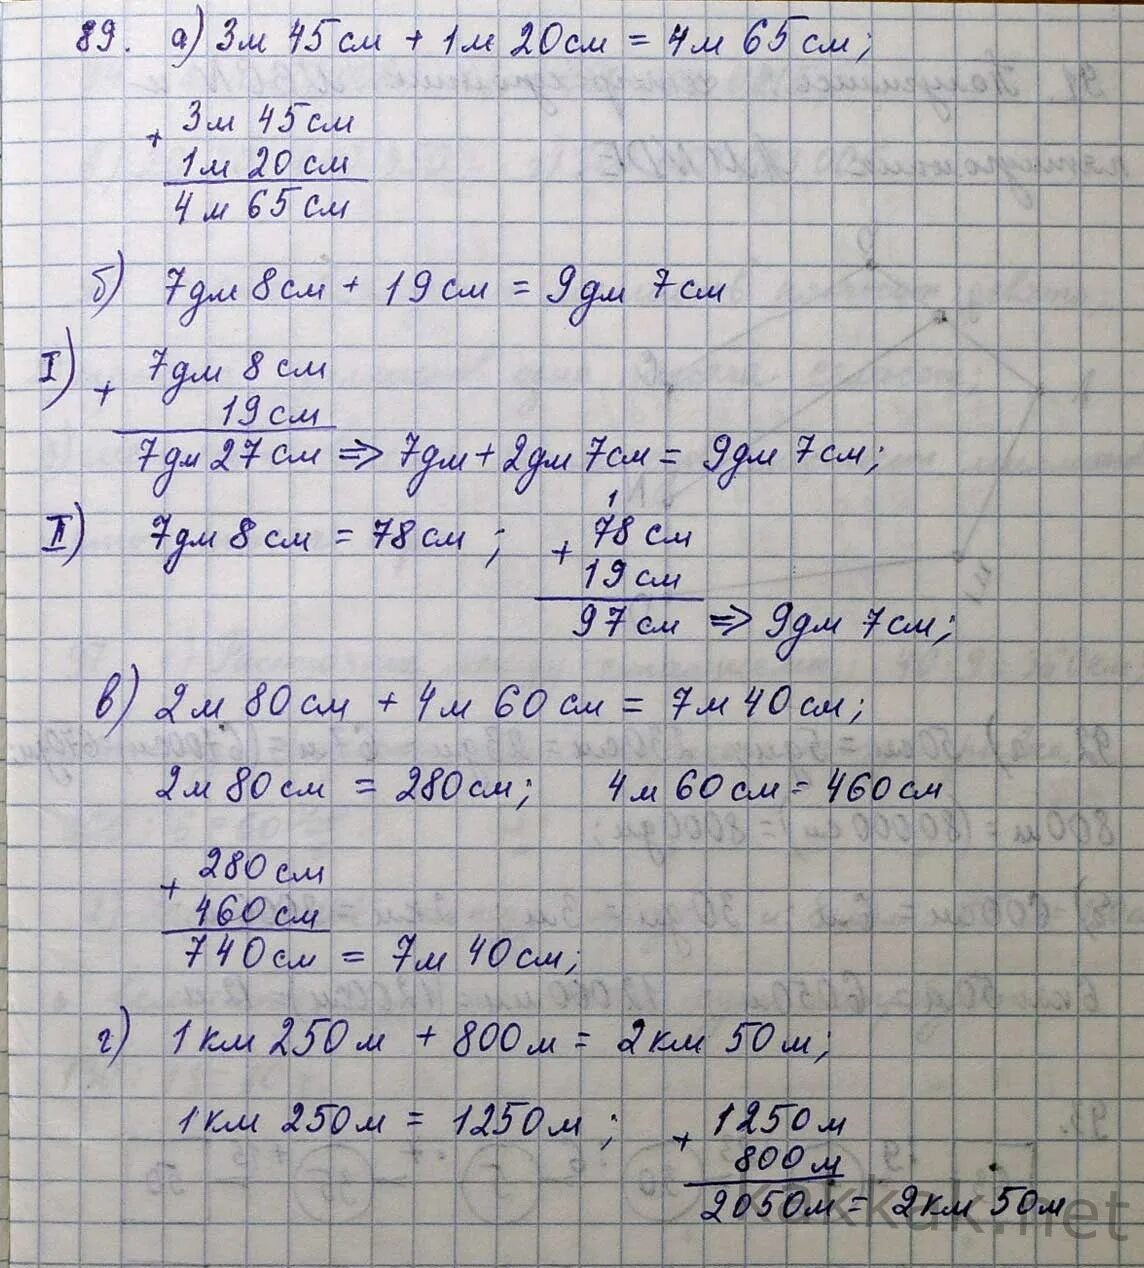 89. а) 3м 45см + 1м 20см = 4м 65см;
+ 3м 45см
1м 20см
4м 65см
б) 7дм 8см + 19см = 9дм 7см
I) + 7дм 8см
19см
7дм 27см => 7дм + 2дм 7см = 9дм 7см;
II) 7дм 8см = 78см ; + 1
78см
19см
97см => 9дм 7см;
в) 2м 80см + 4м 60см = 7м 40см;
2м 80см = 280см; 4м 60см = 460см
+ 280см
460см
740см = 7м 40см;
г) 1км 250м + 800м = 2км 50м;
1км 250м = 1250м ; + 1250м
800м
2050м = 2км 50м